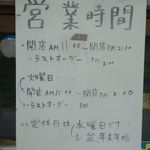 営業時間
・開店AM11:00〜閉店PM2:30
・ラストオーダー PM
火曜日
・開店AM11:00〜閉店PM2:00
・ラストオーダー PM
・定休日は水曜日です。
お盆年末年始